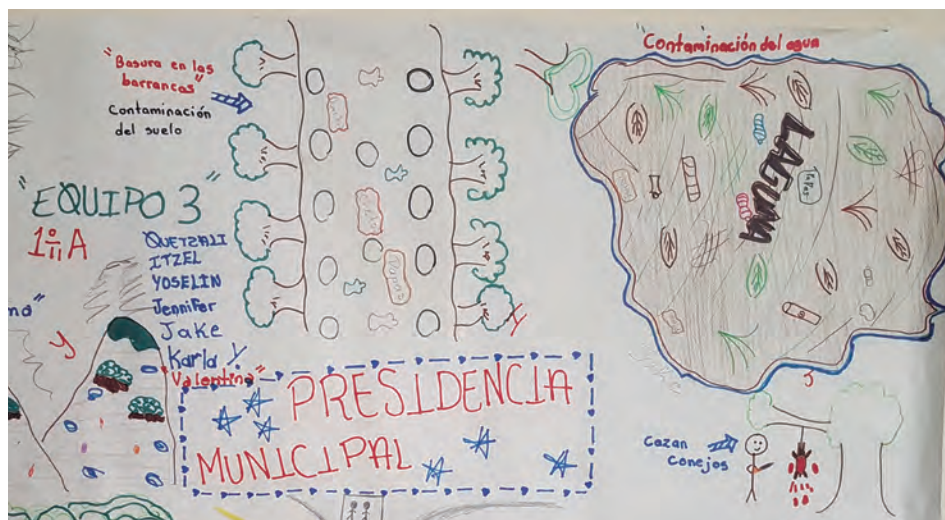 "Basura en las
barrancas"
Contaminación
del suelo
"Contaminación del agua"
LAGUNA
"EQUIPO 3"
1º A
QUETZALI
ITZEL
YOSELIN
Jennifer
Jake
Karla Y
"Valentina"
PRESIDENCIA
MUNICIPAL
Cazan
Conejos